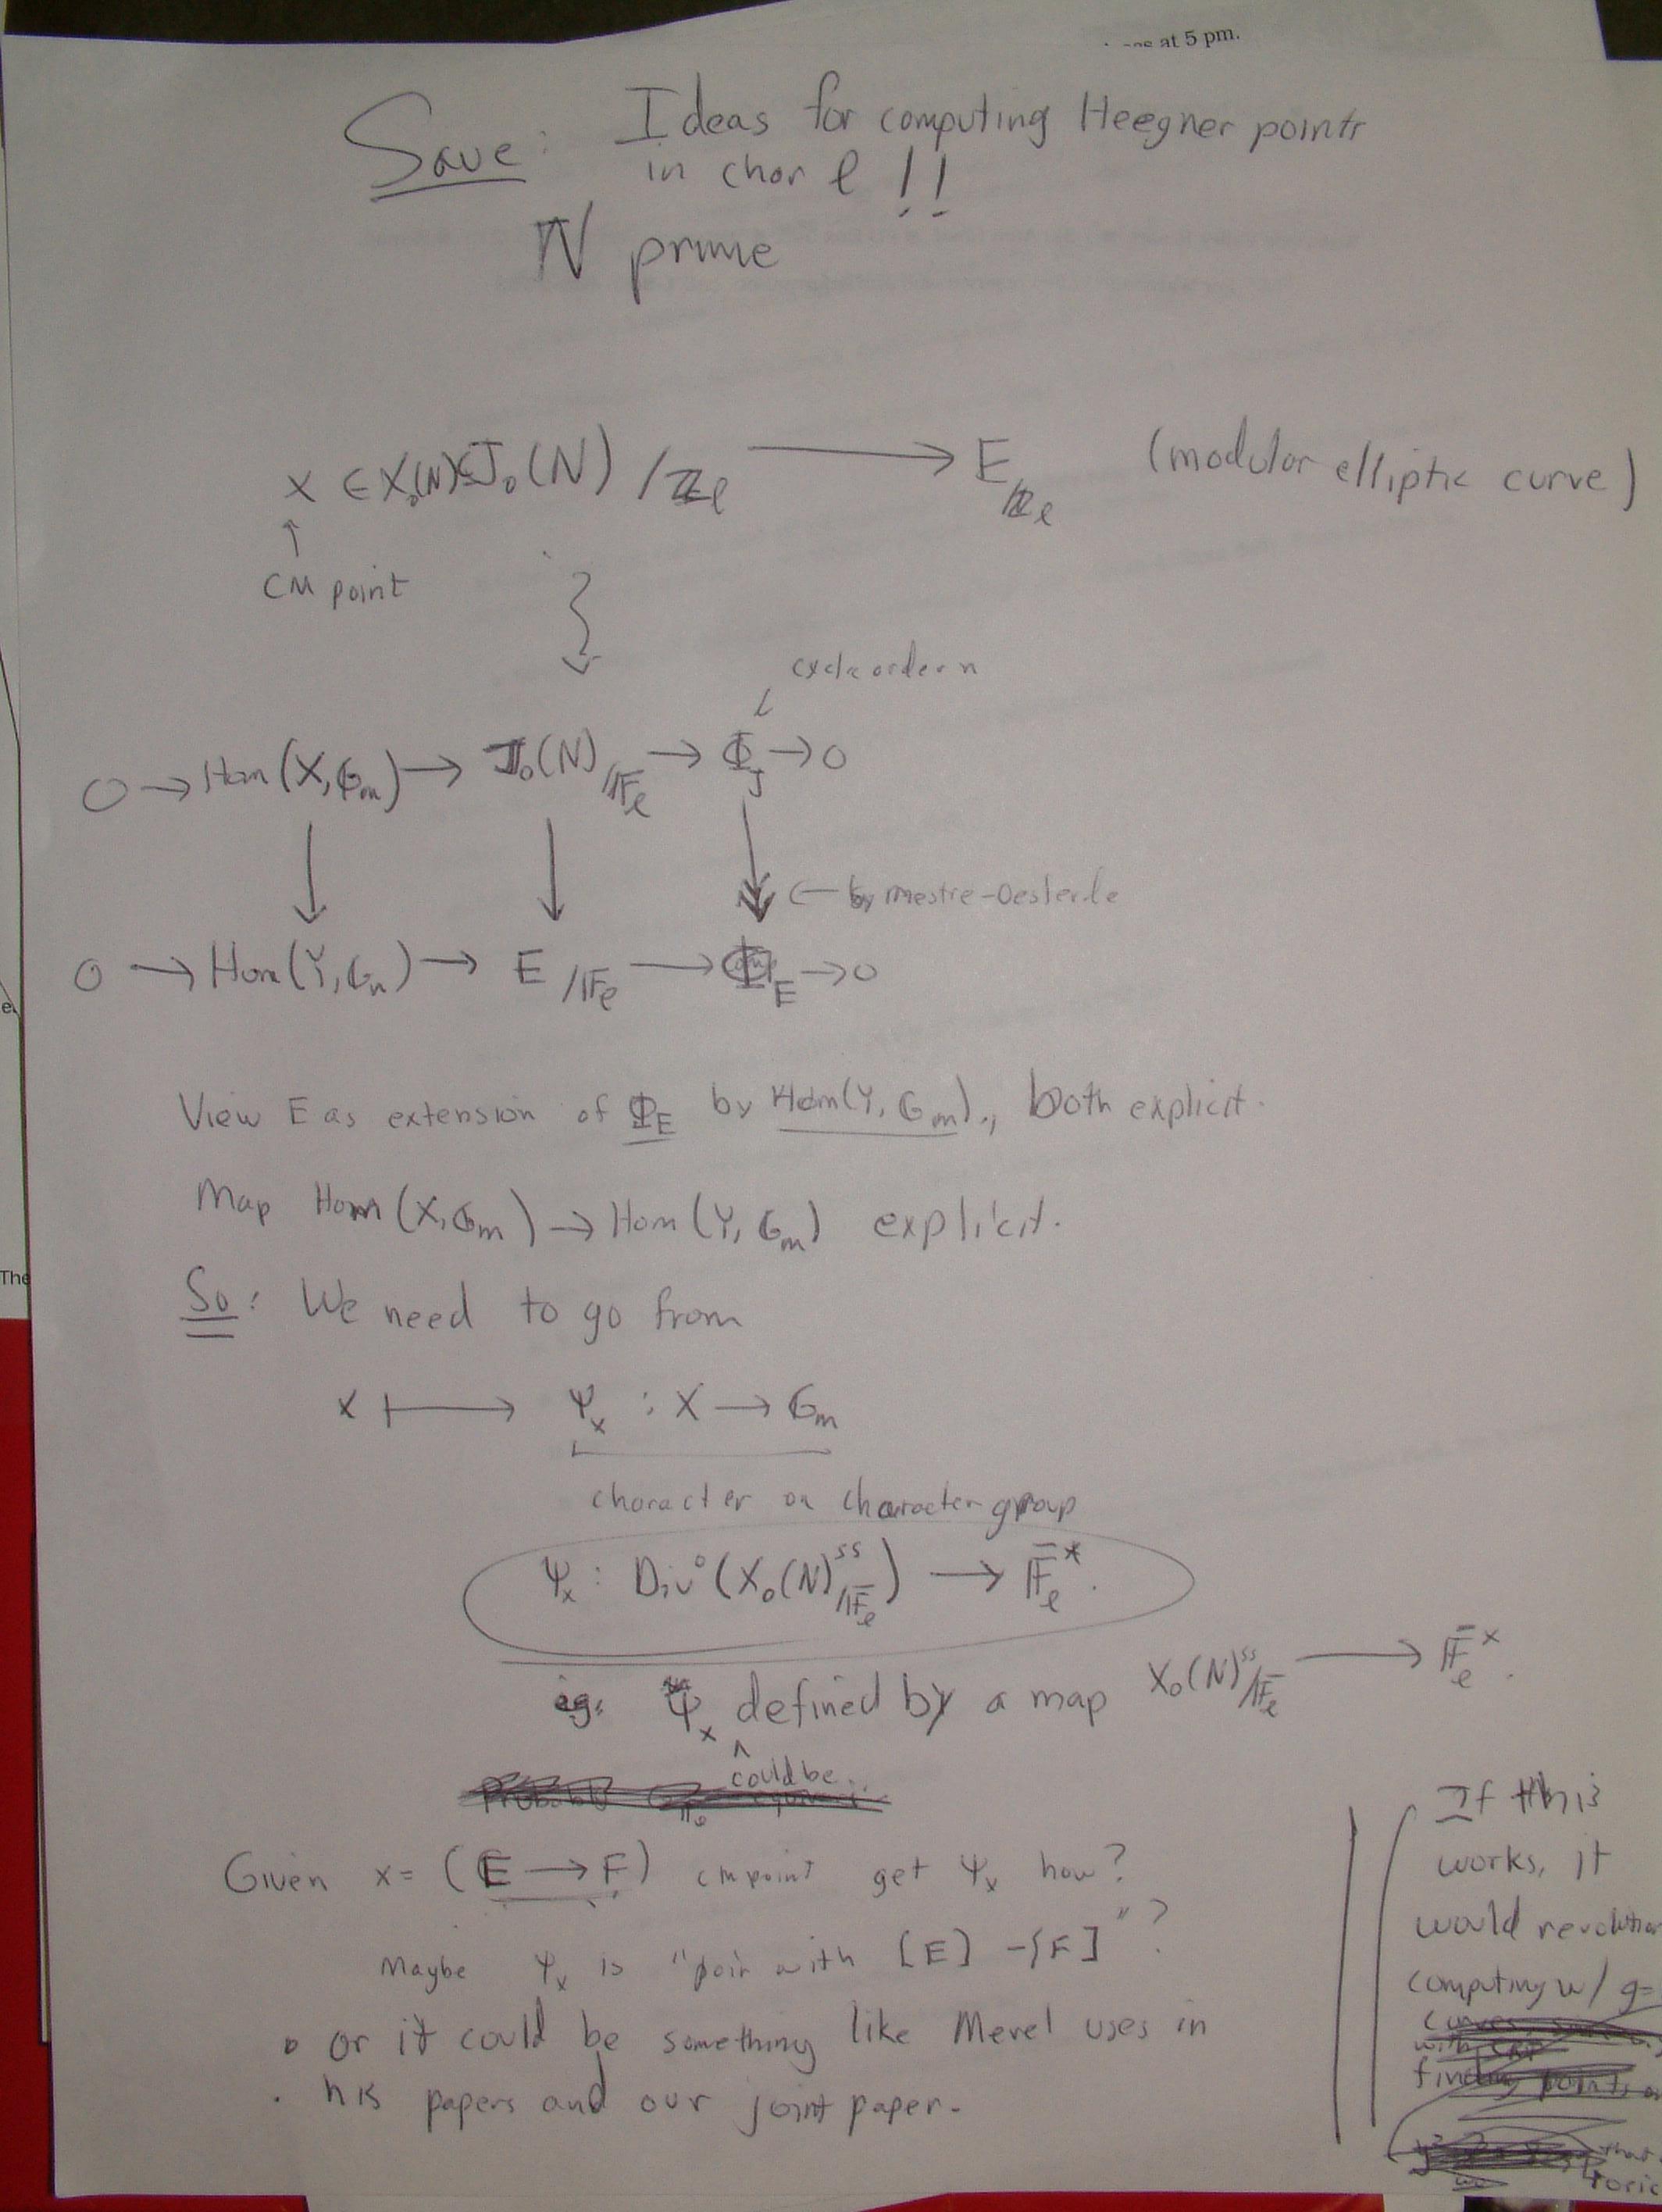 at 5 pm.
Save: Ideas for computing Heegner points
in char ℓ !!
N prime
x ∈ X₀(N) ⊆ J₀(N) /ℤℓ ⟶ E/ℤℓ (modular elliptic curve)
↑
CM point
cyclic order n
0 → Hom(X, 𝔾m) → J₀(N)/𝔽ℓ → Φ_J → 0
← by mestre-Oesterle
0 → Hom(Y, 𝔾m) → E/𝔽ℓ → Φ_E → 0
View E as extension of Φ_E by Hom(Y, 𝔾m)., both explicit.
Map Hom(X, 𝔾m) → Hom(Y, 𝔾m) explicit.
So: We need to go from
x ⟼ Ψₓ : X → 𝔾m
character on character group
Ψₓ : Div⁰(X₀(N)^ss /𝔽̄ℓ) → 𝔽̄ℓ*.
eg. Ψₓ defined by a map X₀(N)^ss /𝔽̄ℓ ⟶ 𝔽̄ℓ^×.
^ could be
Given x = (E → F) cm point get Ψₓ how?
Maybe Ψₓ is "pair with [E] - [F]"?
or it could be something like Merel uses in
his papers and our joint paper.
If this
works, it
would revolution
computing w/ g=
that
toric
The